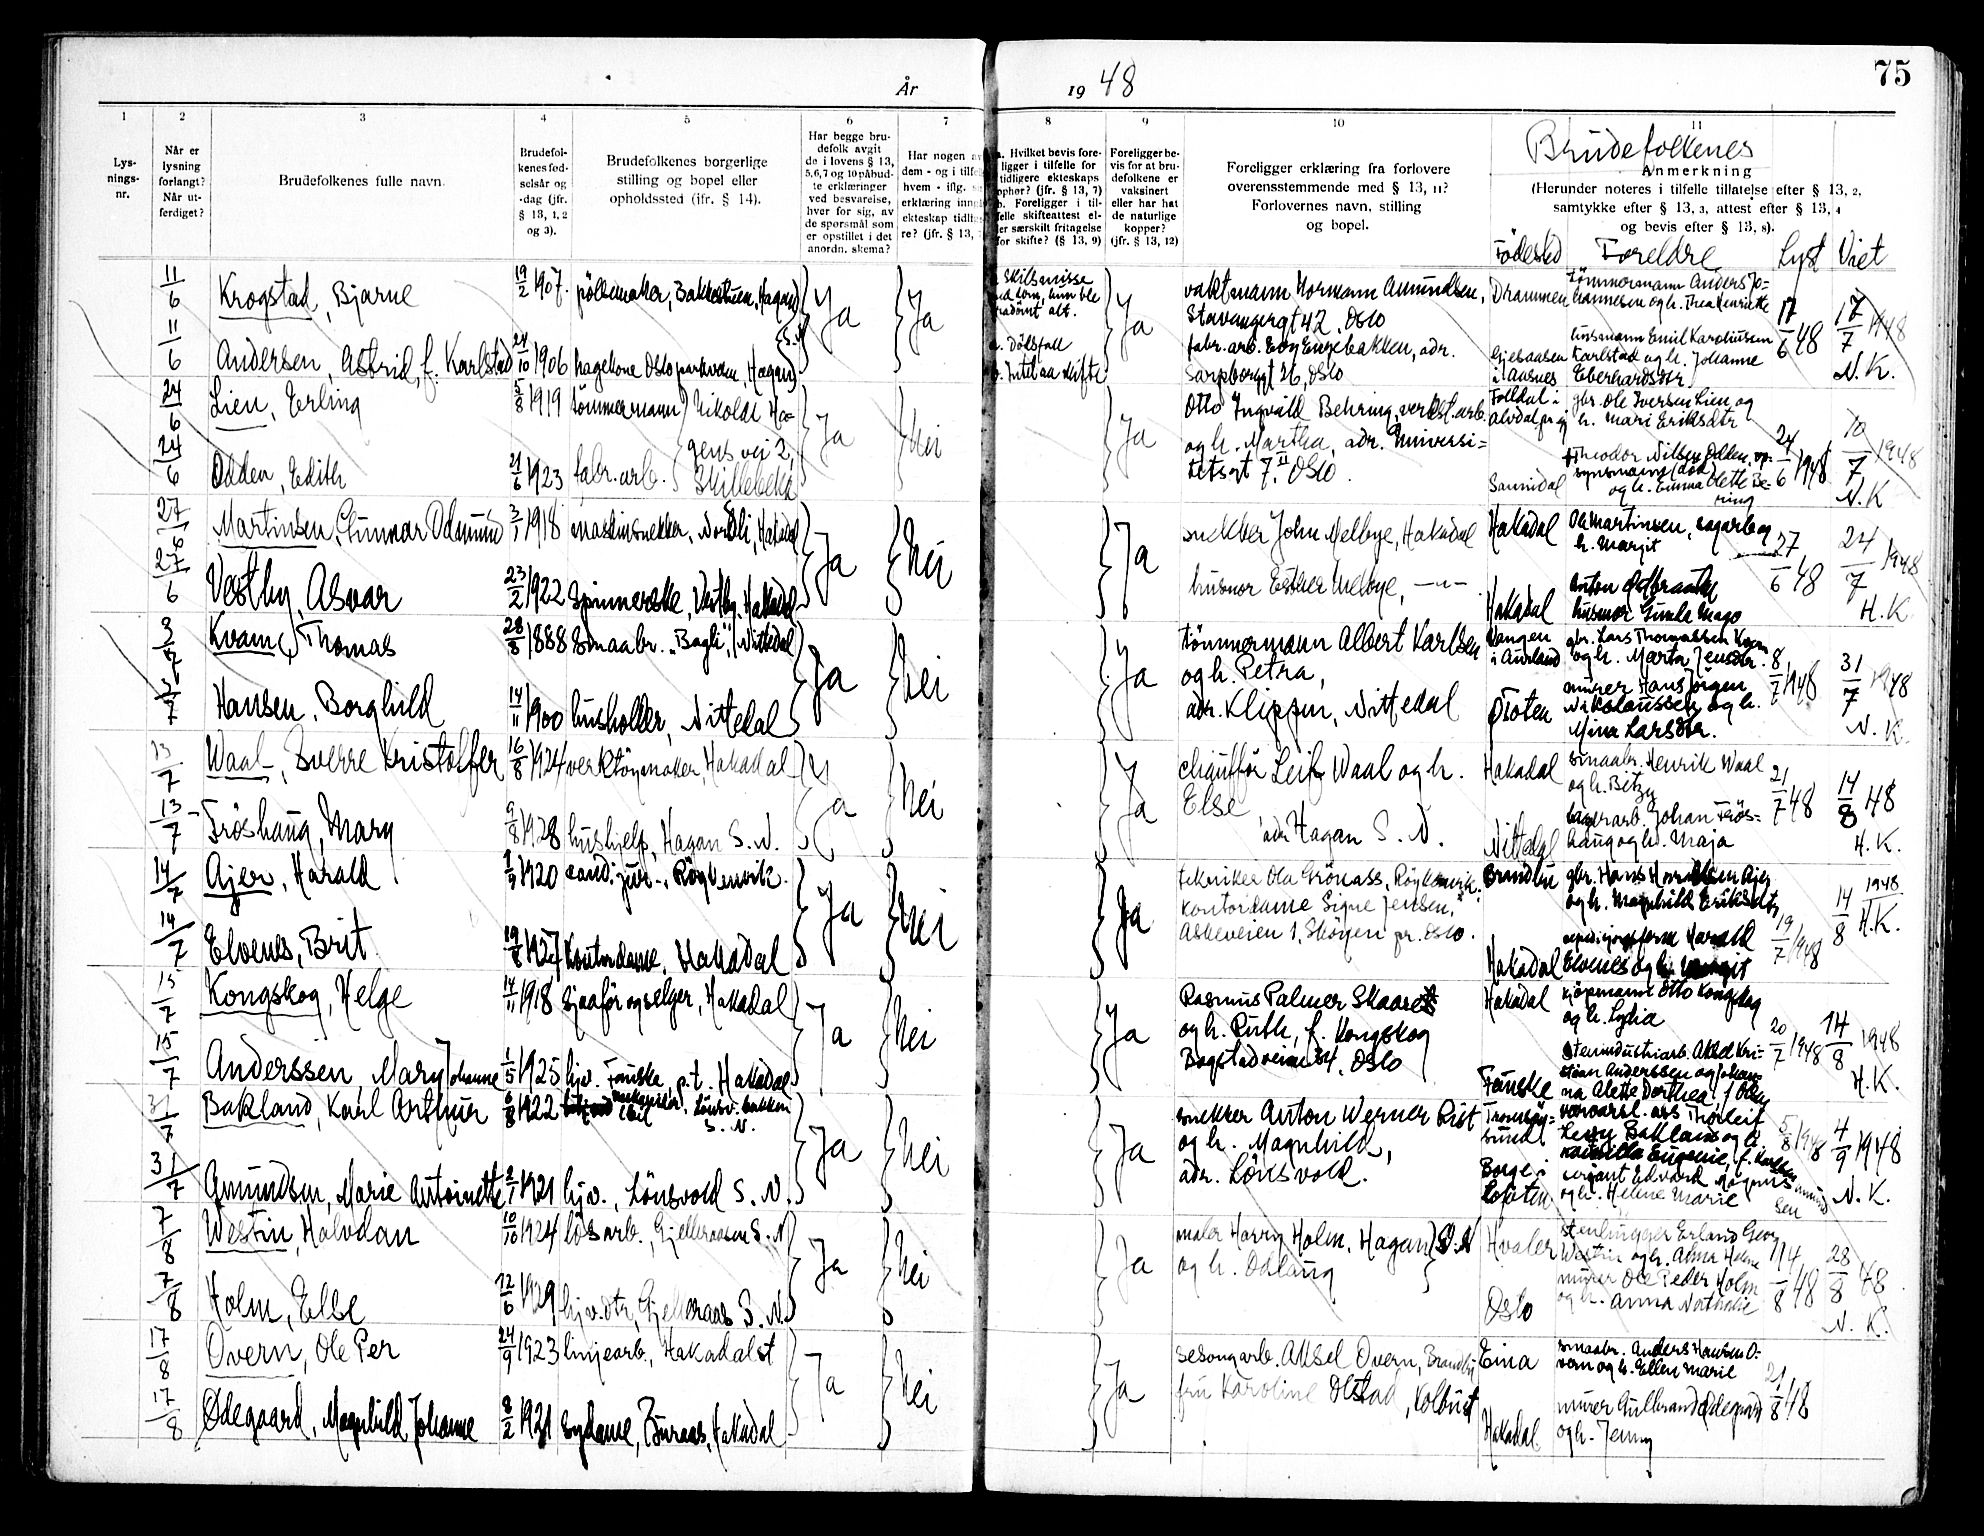 År
19 48
75
1
2
3
4
5
6
7
8
9
10
11
Lys-
nings-
nr.
Når er
lysning
forlangt?
Når ut-
ferdiget?
Brudefolkenes fulle navn.
Brudefol-
kenes fød-
selsår og
-dag (jfr.
§ 13, 1, 2
og 3).
Brudefolkenes borgerlige
stilling og bopel eller
opholdssted (jfr. § 14).
Har begge bru-
defolk avgit
de i lovens § 13,
5,6,7 og 10 påbud-
te erklæringer
ved besvarelse,
hver for sig, av
de spørsmål som
er opstillet i det
anordn. skema?
Har nogen av
dem - og i tilfel
hvem - iflg. s
erklæring inn
ekteskap tidlig
re? (jfr. § 13,
a. Hvilket bevis fore-
ligger i tilfelle for
tidligere ekteskaps
ophør? (jfr. § 13, 7)
b. Foreligger i til-
felle skifteattest el-
ler særskilt fritagelse
for skifte? (§ 13, 9)
Foreligger be-
vis for at bru-
defolkene er
vaksinert
eller har hat
de naturlige
kopper?
(jfr. § 13, 12)
Foreligger erklæring fra forlovere
overensstemmende med § 13, 11?
Forlovernes navn, stilling
og bopel.
Brudefolkenes
Anmerkning
(Herunder noteres i tilfelle tillatelse efter § 13, 2,
samtykke efter § 13, 3, attest efter § 13, 4
og bevis efter § 13, 8).
Fødested Foreldre Lyst Viet
11/6 Krogstad, Bjarne 19/2 1907 pölsemaker, Bakkestuen, Hagan S.N. Ja Ja
Skilsmisse
Ja
vaktmann Hormann Amundsen,
Stavangergt 42, Oslo
Drammen
tømmermann Anders Jo-
hannesen og h. Thea Henriette
17/6 48 17/7 1948 N.K.
11/6 Andersen, Astrid, f. Karlstad 24/10 1906 hagekone Oslo parkvesen, Hagan
a. Dödsfall
b. Intet aa skifte
fabr.arb. Engebakken, adr.
Sarpborggt 26, Oslo
i Aasnes
husmann Emil Karoliussen
Karlstad og h. Johanne
Eberhardsdtr
24/6 Lien, Erling 5/8 1919 tömmermann Nikolai Ha-
gens vei 2,
Skillebekk
Ja Nei Ja
Otto Ingvald Behring, verkst.arb.
og h. Martha, adr. Universi-
tetsgt 7 II Oslo
Folldal i
gbr. Ole Iversen Lien og
h. Mari Eriksdtr
24/6 1948 10/7 1948 N.K
24/6 Odden, Edith 21/6 1923 fabr.arb.
Sannidal
Theodor Nilsen Odden, op-
synsmann (död)
og h. Emma Olette Be-
ring
27/6 Martinsen, Gunnar Odmund 3/1 1918 maskinsnekker, Nordli, Hakadal Ja Nei Ja
snekker John Melbye, Hakadal
Hakadal
Ole Martinsen, sagarb. og
h. Margit
27/6 48 24/7 1948 H.K
27/6 Vestby, Asvar 23/2 1922 Spinnerske, Vestby, Hakadal
husmor Esther Melbye, —"—
Hakadal
Anton
husmor Gunda Mago
3/7 Kvam, Thomas 28/8 1888 Smaabr. "Bagli", Nittedal Ja Nei Ja
tömmermann Albert Karlsen
og h. Petra,
adr. Klippen, Nittedal
Vangen
i Aurland
gbr. Lars Thomassen Kvam
og h. Marta Jensdtr.
8/7 1948 31/7 1948 N.K.
3/7 Hansen, Borghild 14/11 1900 husholder, Nittedal
Toten
murer Hans Jörgen
Nikolaussen og h.
Mina Larsdtr.
13/7 Waal, Sverre Kristoffer 16/8 1924 verktöymaker Hakadal Ja Nei Ja
chauffør Leif Waal og h.
Else
adr Hagan S.N.
Hakadal
smaabr. Henrik Waal
og h. Betzy
21/7 48 14/8 48 H.K.
13/7 Fröshaug, Mary 9/8 1928 hushjelp, Hagan S.N.
Nittedal
lagerarb. Johan Frös-
haug og h. Maja
14/7 Ajer, Harald 1920 cand. jur., Röykenvik. Ja Nei Ja
tekniker Ola Grönass, Röykenvik.
Kontordame Signe Jensen,
Askeveien 1, Sköyen pr. Oslo.
Brandbu
gbr. Hans Ajer
og h. Magnhild Eriksdtr
19/7 1948 14/8 1948 H.K.
14/7 Elvenes, Brit 19/8 1927 Kontordame, Hakadal
Hakadal
Harald
Elvenes og h. Margit
15/7 Kongskog, Helge 14/11 1918 Sjaafør og selger, Hakadal Ja Nei Ja
Rasmus Palmer Skaaret
og h. Ruth, f. Kongskog
Bogstadveien 34, Oslo
Hakadal
kjöpmann Otto Kongskog
og h. Lydia
20/7 1948 14/8 1948 H.K.
15/7 Anderssen, Mary Johanne 1/5 1925 hjv. Fauske, p.t. Hakadal
Fauske
stenindustriarb. Aksel Kri-
stian Anderssen og Johan-
na Alette Dorthea, f Olsen
31/7 Bakland, Karl Arthur 6/8 1922 mekaniker, Lönsv. bakken
S.N.
Ja Nei Ja
snekker Anton Werner Rist
og h. Magnhild,
adr. Lönsvold.
Tromsöy-
sund
Bakland og h.
Eugenie, f. Karlsen
5/8 1948 4/9 1948 N.K.
31/7 Amundsen, Marie Antoinette 2/1 1921 hjv. Lönsvold S.N.
Borge i
Lofoten
sersjant Edvard Magnus Amund
sen
og h. Helene Marie
7/8 Westin, Halvdan 10/10 1924 lösarb., Gjelleraasen S.N Ja Nei Ja
maler Harry Holm, Hagan S.N
og h. Odlaug
Hvaler
stenhugger Erland Georg
Westin og h. Alma Helene
14/8 48 28/8 48 N.K.
7/8 Holm, Else 12/6 1929 hjv. dtr, Gjelleraas S.N.
Oslo
murer Ole Peder Holm
og h. Anna Nathalie
17/8 Overn, Ole Per 24/9 1923 linjearb., Hakadal st Ja Nei Ja
sesongarb. Aksel Overn, Brandbu
fru Karoline Olstad, Kolbust
Eina
smaabr. Anders Hansen O-
vern og h. Ellen Marie
21/8 48
17/8 Ødegaard, Magnhild Johanne 8/2 1921 sydame, Buraas, Hakadal
Hakadal
murer Gulbrand Ødegaard
og h. Jenny